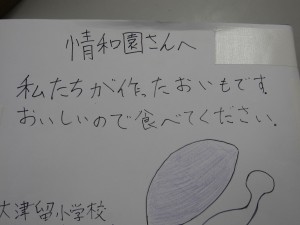 情和園さんへ
私たちが作ったおいもです。
おいしいので食べてください。
大津留小学校